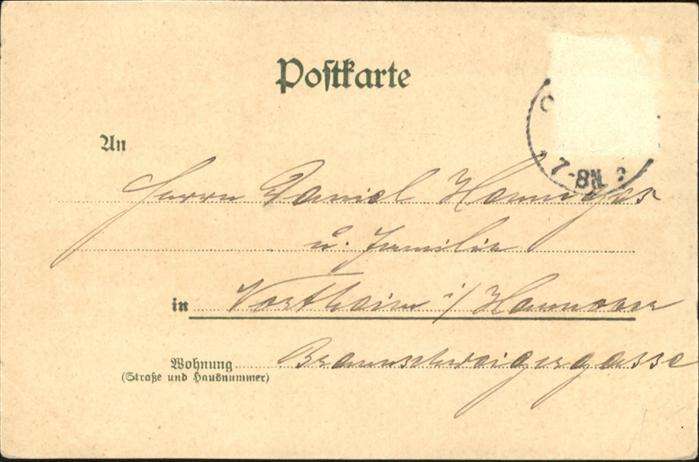 Postkarte
7-8N.
An
Herrn Daniel Hennigs
u. Familie
in Northeim i/Hannover
Wohnung Braunschweigergasse
(Straße und Hausnummer)